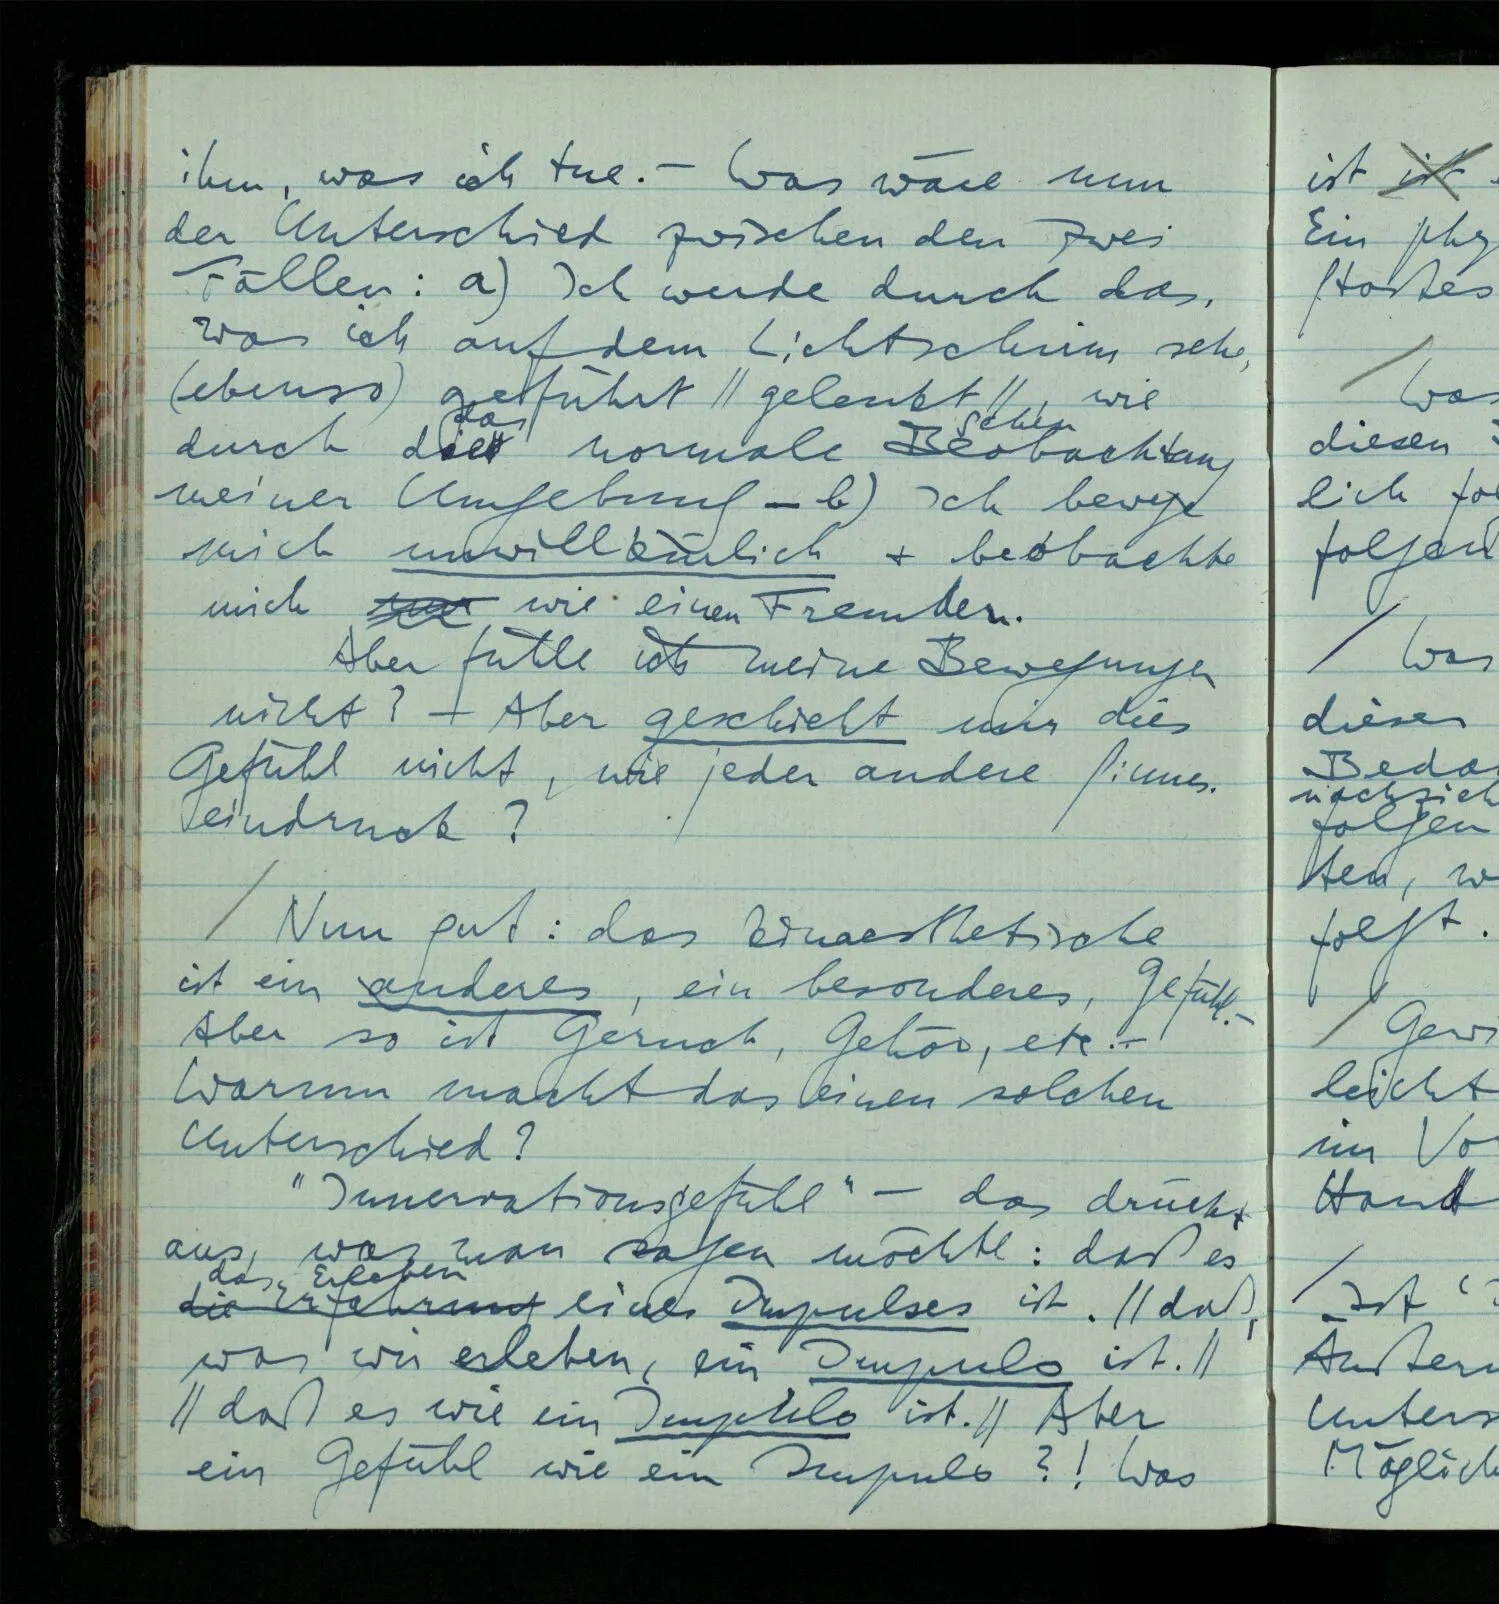 ihm, was ich tue. – Was wäre nun
der Unterschied zwischen den zwei
Fällen: a) Ich werde durch das,
was ich auf dem Lichtschirm sehe,
(ebenso) geführt // gelenkt //, wie
das sehen
durch die normale Beobachtung
meiner Umgebung – b) Ich bewege
mich unwillkürlich + beobachte
mich nur wie einen Fremden.
Aber fühle ich meine Bewegungen
nicht? – Aber geschieht mir dies
Gefühl nicht, wie jeder andere Sinnes-
eindruck?
/ Nun gut: das kinaesthetische
ist ein anderes, ein besonderes, Gefühl. –
Aber so ist Geruch, Gehör, etc. –
Warum macht das einen solchen
Unterschied?
"Innervationsgefühl" – das drückt
aus, was man sagen möchte: daß es
das Erleben
die Erfahrung eines Impulses ist. // daß,
was wir erleben, ein Impuls ist. //
// daß es wie ein Impuls ist. // Aber
ein Gefühl wie ein Impuls?! Was
ist ist
Ein phy
Stoßes
/ Was
diesen
lich fol
folgend
/ Was
dieser
Beda
nachzieh
folgen
ten, w
folgt.
/ Gewi
leicht
im Vo
Hand
/ Ist
Äußeru
Unters
Möglich